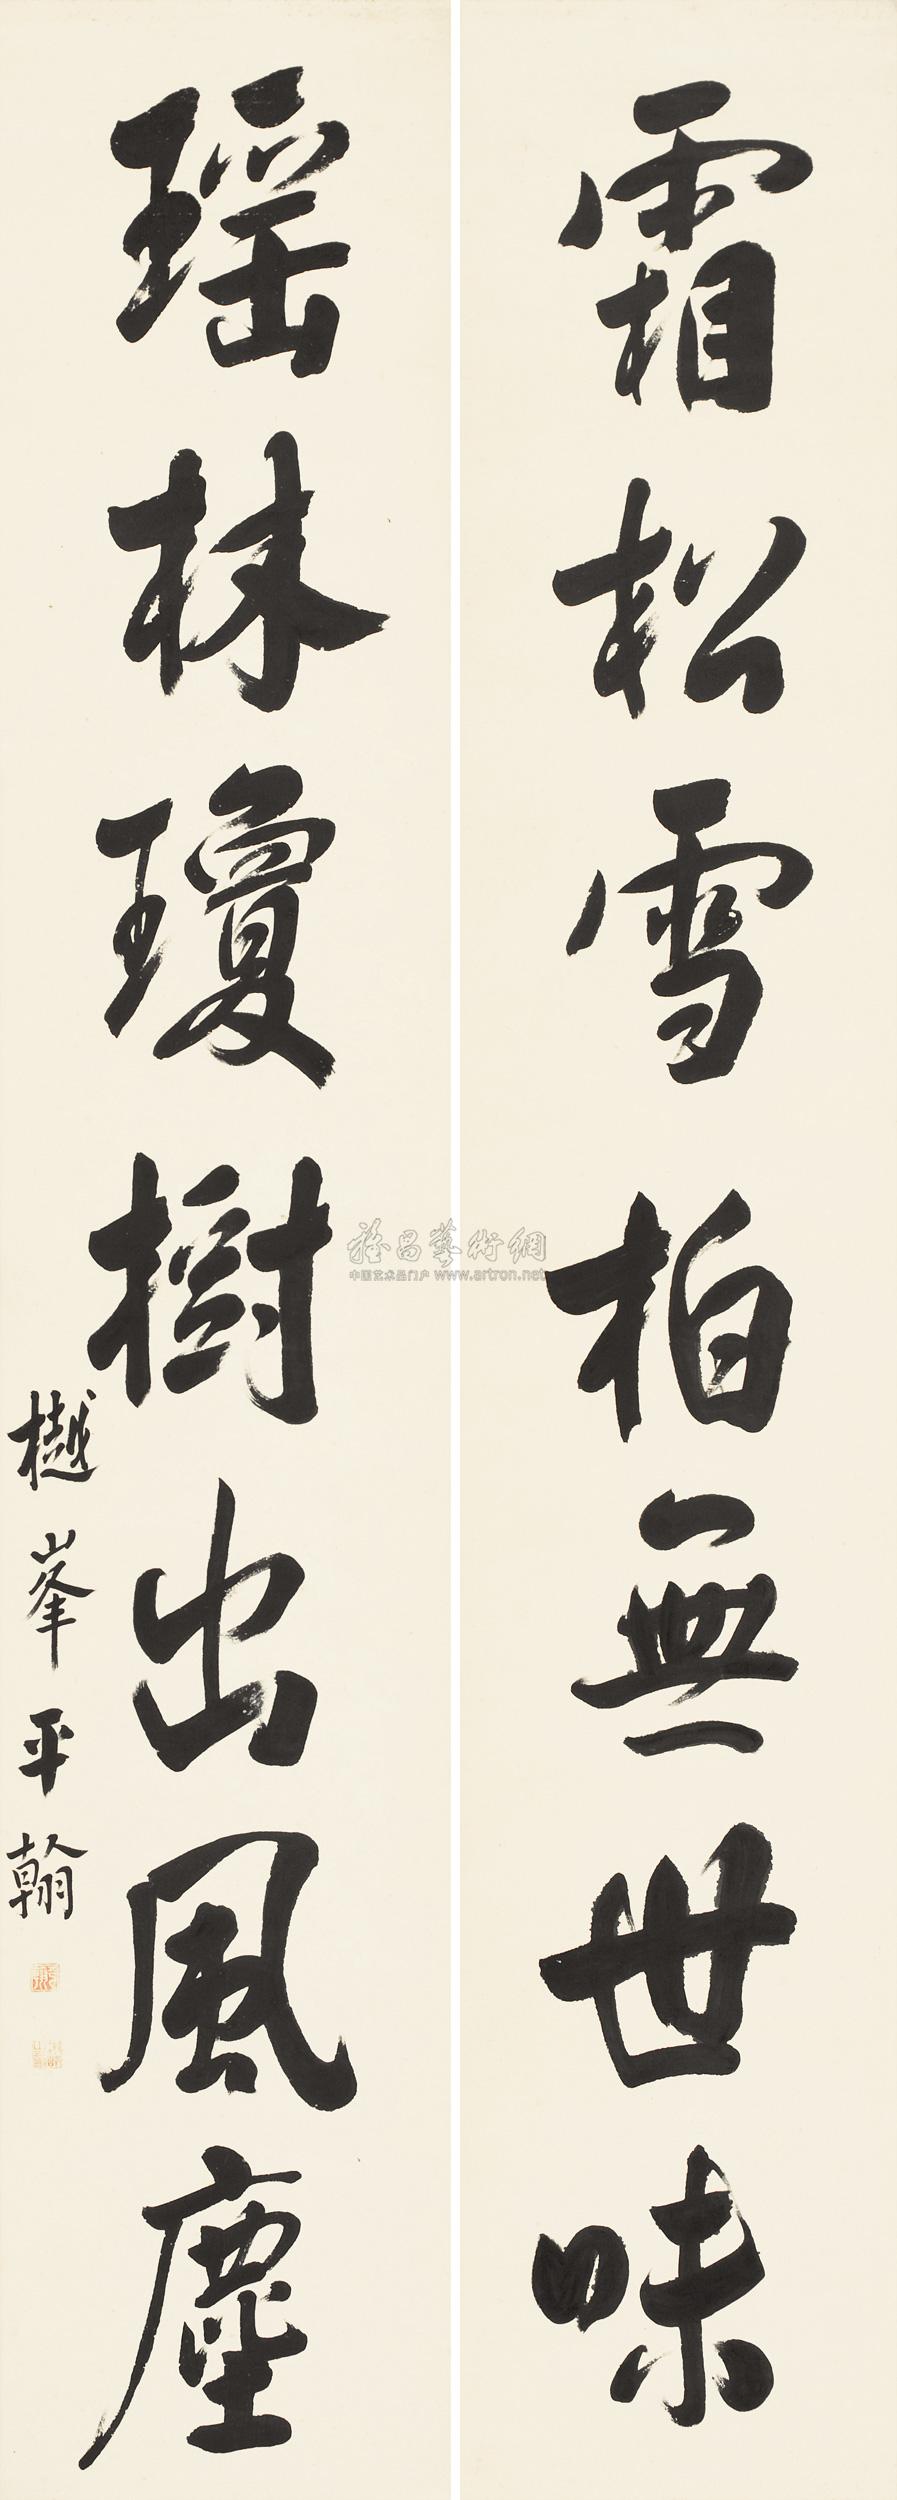 霜松雪柏無世味
瑶林瓊樹出風塵
樾峯平翰
雅昌藝術網
中国艺术品门户 www.artron.net